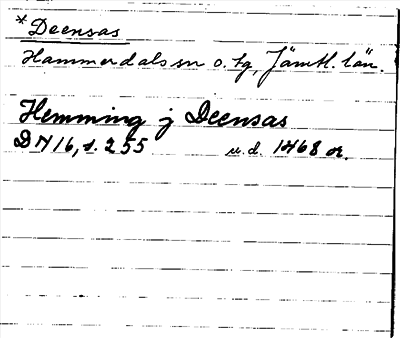 * Deensas
Hammerdals sn o. tg, Jämtl. län.
Hemming j Deensas
DN 16, s. 255 u.d. 1468 or.